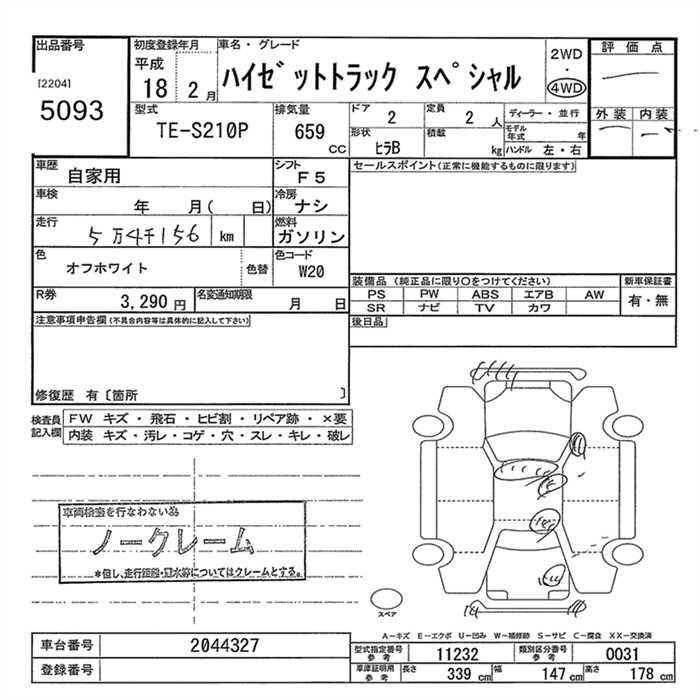 出品番号
[2204]
5093
初度登録年月
平成
18 2 月
車名・グレード
ハイゼットトラック スペシャル
2WD
・
4WD
評価点
外装 内装
型式
TE-S210P
排気量
659
CC
ドア
2
定員
2 人
ディーラー・並行
形状
ヒラB
積載
kg
モデル年式 年
ハンドル 左・右
車歴
自家用
シフト
F5
セールスポイント(正常に機能するものに限ります)
車検
年 月( 日)
冷房
ナシ
走行
5万4千156 km
燃料
ガソリン
色
オフホワイト
色替
色コード
W20
装備品(純正品に限り○をつけてください)
新車保証書
PS PW ABS エアB AW
有・無
SR ナビ TV カワ
R券
3,290 円
名変通知期限
月 日
後日品
注意事項申告欄(不具合内容等は具体的に記入して下さい)
修復歴 有〔箇所 〕
検査員記入欄
FW キズ・飛石・ヒビ割・リペア跡・×要
内装 キズ・汚レ・コゲ・穴・スレ・キレ・破レ
車両検査を行なわない為
ノークレーム
*但し、走行距離・冠水等についてはクレームとする。
スペア
A-キズ E-エクボ U-凹み W-補修跡 S-サビ C-腐食 XX-交換済
車台番号
2044327
型式指定番号
参考
11232
類別区分番号
参考
0031
登録番号
車庫証明用
参考
長さ
339 cm
幅
147 cm
高さ
178 cm